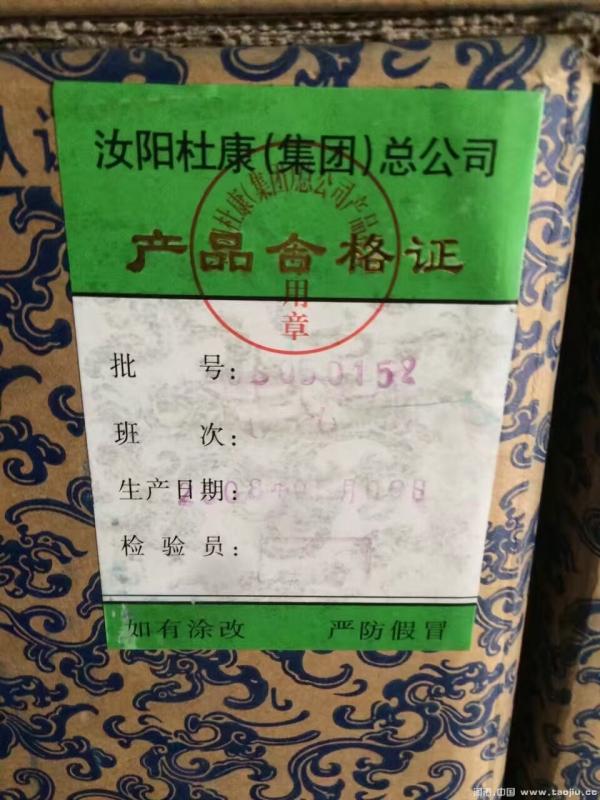 汝阳杜康(集团)总公司
杜康(集团)总公司产品
产品合格证
用章
批 号:
班 次:
生产日期:
检验员:
如有涂改 严防假冒
中国 www.taojiu.cc